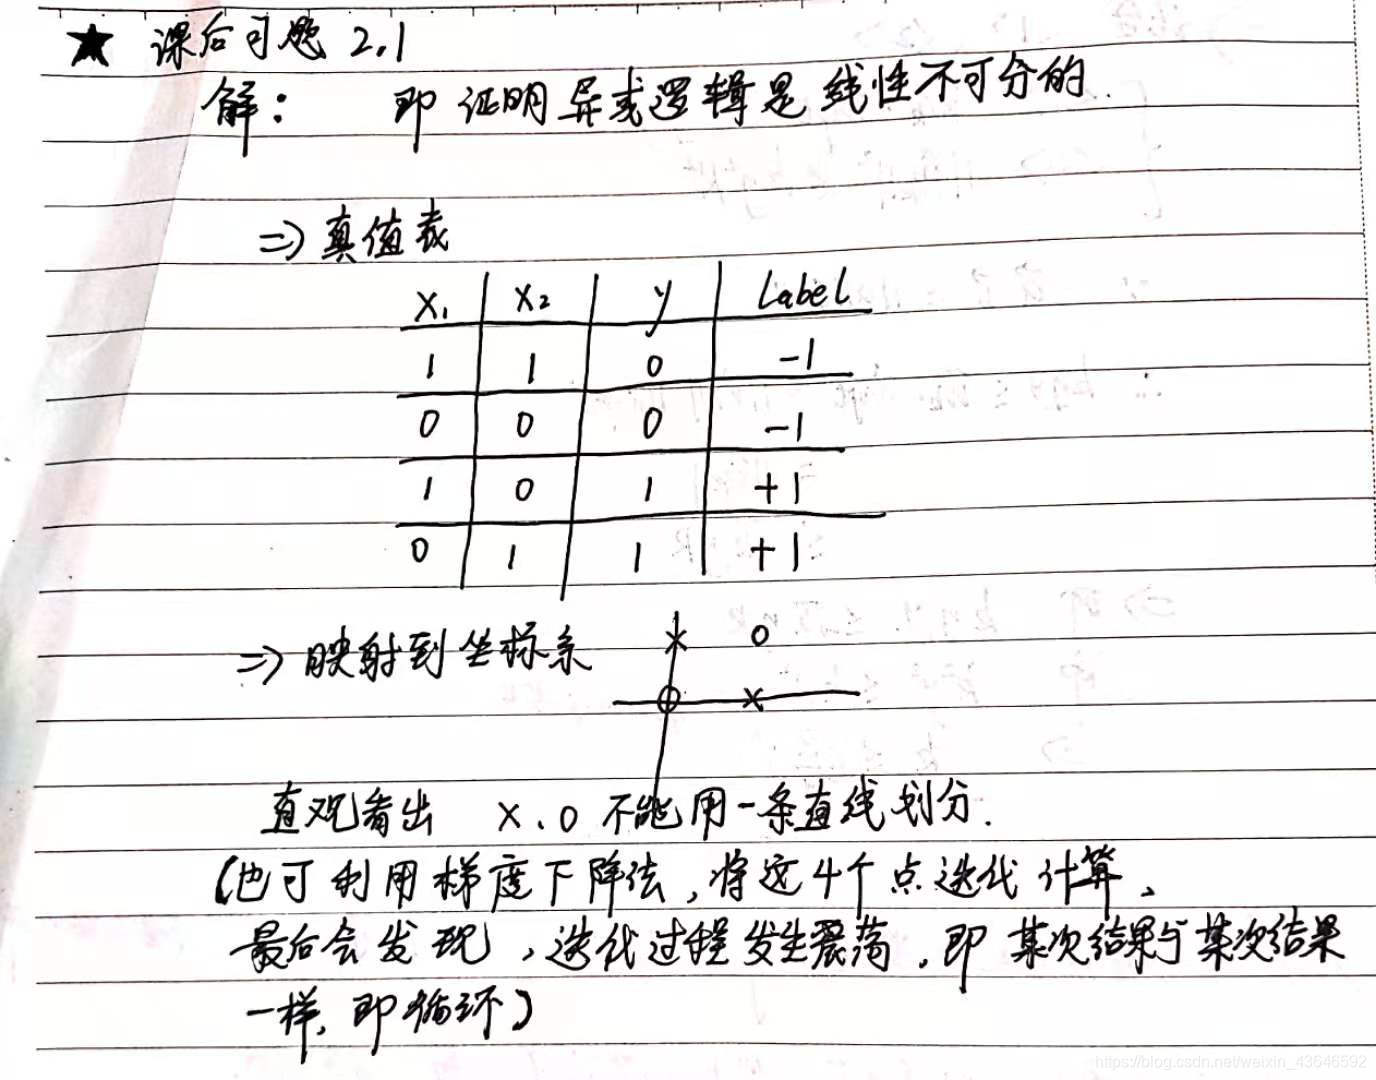 ★ 课后习题 2.1
解： 即证明异或逻辑是线性不可分的.
⇒ 真值表
x₁ x₂ y Label
1 1 0 -1
0 0 0 -1
1 0 1 +1
0 1 1 +1
⇒ 映射到坐标系
直观看出 x、o 不能用一条直线划分.
(也可利用梯度下降法，将这4个点迭代计算、
最后会发现，迭代过程发生震荡，即某次结果与某次结果
一样，即循环)
https://blog.csdn.net/weixin_43646592